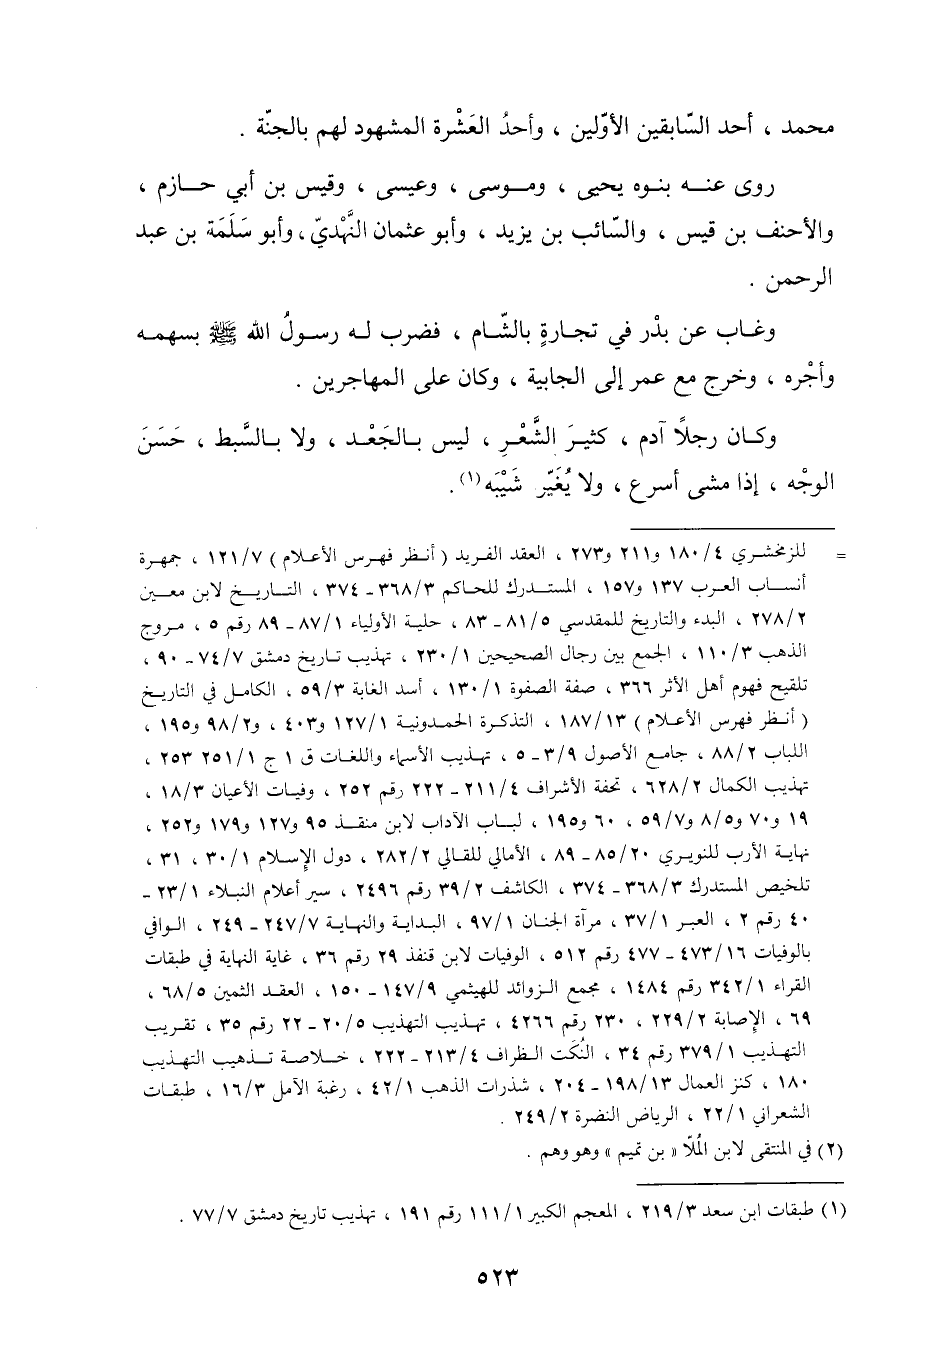 محمد ، أحد السّابقين الأوّلين ، وأحدُ العَشْرة المشهود لهم بالجنّة .
روى عنه بنوه يحيى ، وموسى ، وعيسى ، وقيس بن أبي حازم ،
والأحنف بن قيس ، والسّائب بن يزيد ، وأبو عثمان النَّهْديّ ، وأبو سَلَمَة بن عبد
الرحمن .
وغاب عن بدْر في تجارةٍ بالشّام ، فضرب له رسولُ الله ﷺ بسهمه
وأجْره ، وخرج مع عمر إلى الجابية ، وكان على المهاجرين .
وكان رجلاً آدم ، كثيرَ الشَّعْرِ ، ليس بالجَعْد ، ولا بالسَّبط ، حَسَنَ
الوجْه ، إذا مشى أسرع ، ولا يُغَيّر شَيْبَه (١) .
= للزمخشري ٤/ ١٨٠ و٢١١ و٢٧٣ ، العقد الفريد ( أنظر فهرس الأعلام ) ٧/ ١٢١ ، جمهرة
أنساب العرب ١٣٧ و١٥٧ ، المستدرك للحاكم ٣/ ٣٦٨ ـ ٣٧٤ ، التاريخ لابن معين
٢/ ٢٧٨ ، البدء والتاريخ للمقدسي ٥/ ٨١ ـ ٨٣ ، حلية الأولياء ١/ ٨٧ ـ ٨٩ رقم ٥ ، مروج
الذهب ٣/ ١١٠ ، الجمع بين رجال الصحيحين ١/ ٢٣٠ ، تهذيب تاريخ دمشق ٧/ ٧٤ ـ ٩٠ ،
تلقيح فهوم أهل الأثر ٣٦٦ ، صفة الصفوة ١/ ١٣٠ ، أسد الغابة ٣/ ٥٩ ، الكامل في التاريخ
( أنظر فهرس الأعلام ) ١٣/ ١٨٧ ، التذكرة الحمدونية ١/ ١٢٧ و٤٠٣ ، و٢/ ٩٨ و١٩٥ ،
اللباب ٢/ ٨٨ ، جامع الأصول ٩/ ٣ ـ ٥ ، تهذيب الأسماء واللغات ق ١ ج ١/ ٢٥١ ٢٥٣ ،
تهذيب الكمال ٢/ ٦٢٨ ، تحفة الأشراف ٤/ ٢١١ ـ ٢٢٢ رقم ٢٥٢ ، وفيات الأعيان ٣/ ١٨ ،
١٩ و٧٠ و٥/ ٨ و٧/ ٥٩ ، ٦٠ و١٩٥ ، لباب الآداب لابن منقذ ٩٥ و١٢٧ و١٧٩ و٢٥٢ ،
نهاية الأرب للنويري ٢٠/ ٨٥ ـ ٨٩ ، الأمالي للقالي ٢/ ٢٨٢ ، دول الإسلام ١/ ٣٠ ، ٣١ ،
تلخيص المستدرك ٣/ ٣٦٨ ـ ٣٧٤ ، الكاشف ٢/ ٣٩ رقم ٢٤٩٦ ، سير أعلام النبلاء ١/ ٢٣ ـ
٤٠ رقم ٢ ، العبر ١/ ٣٧ ، مرآة الجنان ١/ ٩٧ ، البداية والنهاية ٧/ ٢٤٧ ـ ٢٤٩ ، الوافي
بالوفيات ١٦/ ٤٧٣ ـ ٤٧٧ رقم ٥١٢ ، الوفيات لابن قنفذ ٢٩ رقم ٣٦ ، غاية النهاية في طبقات
القراء ١/ ٣٤٢ رقم ١٤٨٤ ، مجمع الزوائد للهيثمي ٩/ ١٤٧ ـ ١٥٠ ، العقد الثمين ٥/ ٦٨ ،
٦٩ ، الإصابة ٢/ ٢٢٩ ، ٢٣٠ رقم ٤٢٦٦ ، تهذيب التهذيب ٥/ ٢٠ ـ ٢٢ رقم ٣٥ ، تقريب
التهذيب ١/ ٣٧٩ رقم ٣٤ ، النُكَت الظراف ٤/ ٢١٣ ـ ٢٢٢ ، خلاصة تذهيب التهذيب
١٨٠ ، كنز العمال ١٣/ ١٩٨ ـ ٢٠٤ ، شذرات الذهب ١/ ٤٢ ، رغبة الآمل ٣/ ١٦ ، طبقات
الشعراني ١/ ٢٢ ، الرياض النضرة ٢/ ٢٤٩ .
(٢) في المنتقى لابن المُلّا « بن تميم » وهو وهم .
(١) طبقات ابن سعد ٣/ ٢١٩ ، المعجم الكبير ١/ ١١١ رقم ١٩١ ، تهذيب تاريخ دمشق ٧/ ٧٧ .
٥٢٣